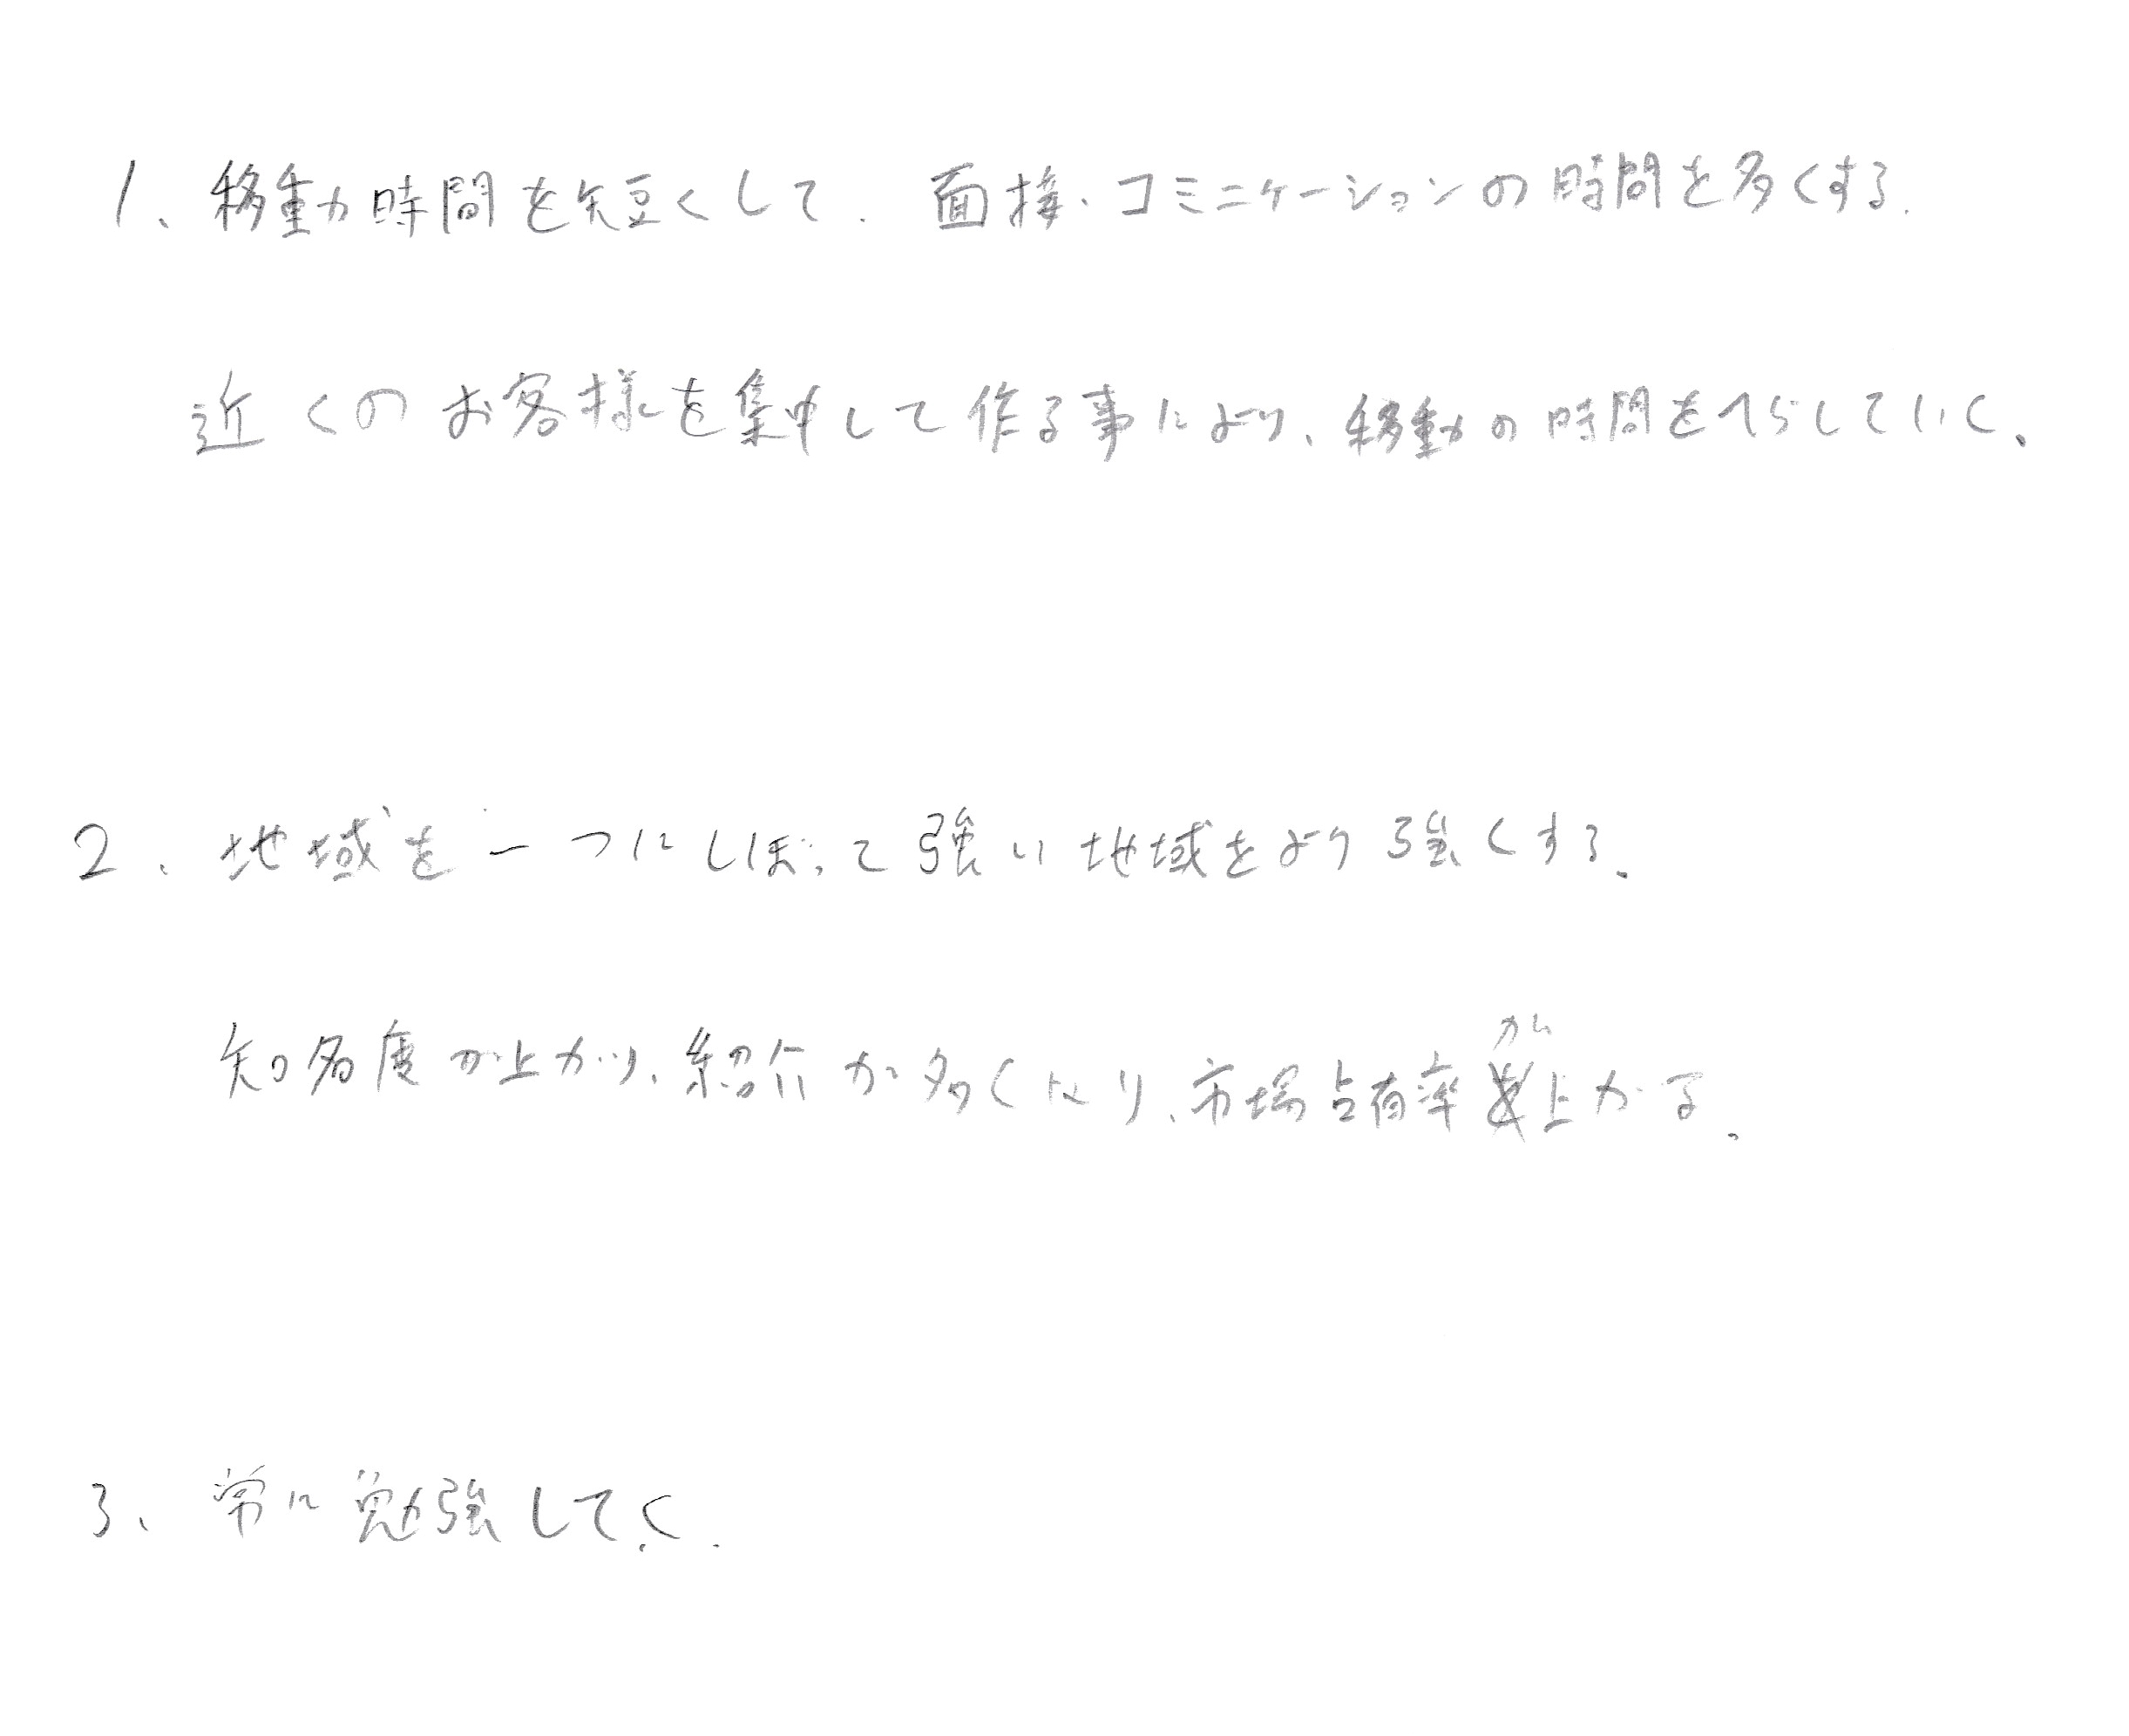 1、移動時間を短くして、面接、コミニケーションの時間を多くする。
近くのお客様を集中して作る事により、移動の時間をへらしていく、
2、地域を一つにしぼって強い地域をより強くする、
知名度が上がり、紹介が多くなり、市場占有率が上がる。
3、常に勉強してく.